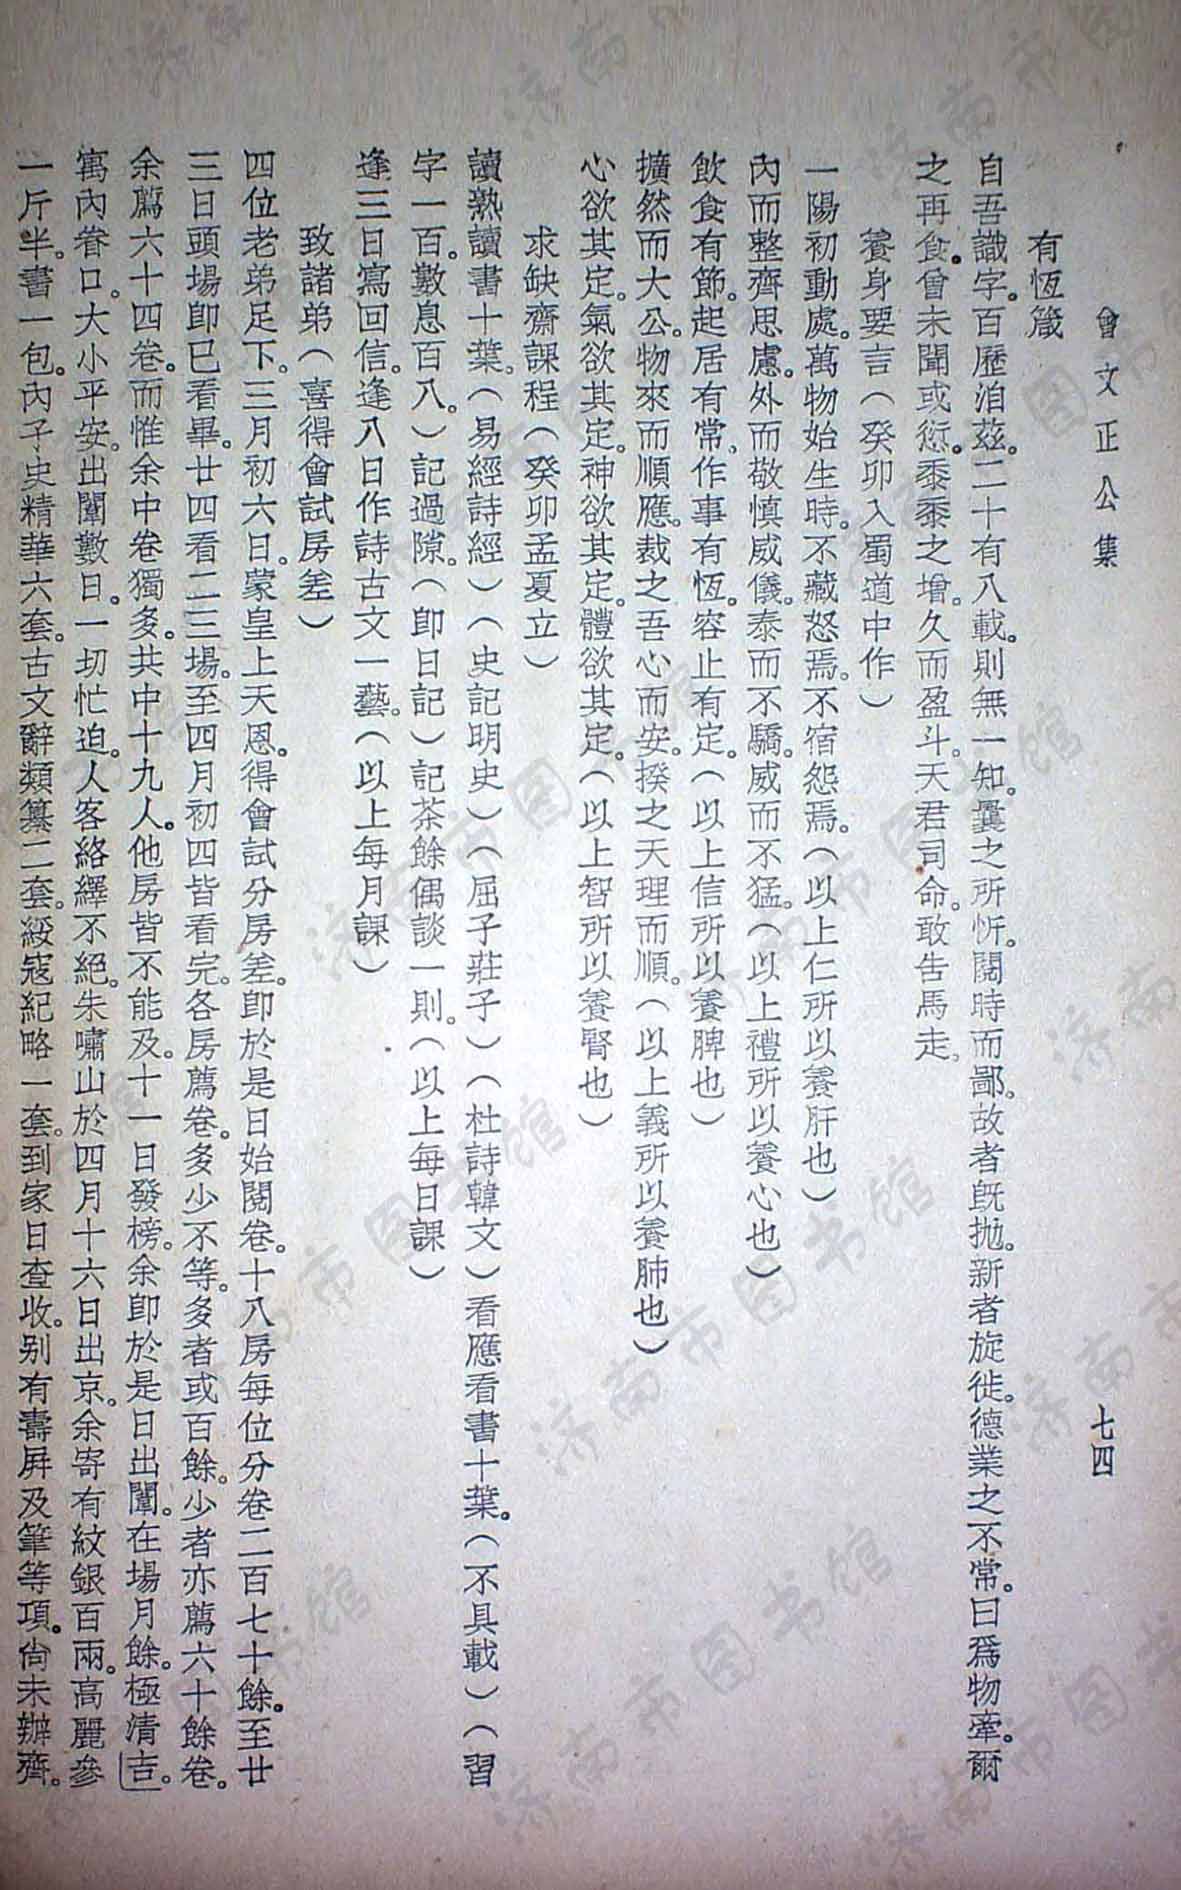 曾文正公集
七四
有恆箴
自吾識字。百歷洎茲。二十有八載。則無一知。曩之所忻。閱時而鄙。故者旣抛。新者旋徙。德業之不常。曰爲物牽。爾
之再食。曾未聞或愆。黍黍之增。久而盈斗。天君司命。敢告馬走。
養身要言（癸卯入蜀道中作）
一陽初動處。萬物始生時。不藏怒焉。不宿怨焉。（以上仁所以養肝也）
內而整齊思慮。外而敬愼威儀。泰而不驕。威而不猛。（以上禮所以養心也）
飲食有節。起居有常。作事有恆。容止有定。（以上信所以養脾也）
擴然而大公。物來而順應。裁之吾心而安。揆之天理而順。（以上義所以養肺也）
心欲其定。氣欲其定。神欲其定。體欲其定。（以上智所以養腎也）
求缺齋課程（癸卯孟夏立）
讀熟讀書十葉。（易經詩經）（史記明史）（屈子莊子）（杜詩韓文）看應看書十葉。（不具載）（習
字一百。數息百八。）記過隙。（卽日記）記茶餘偶談一則。（以上每日課）
逢三日寫回信。逢八日作詩古文一藝。（以上每月課）
致諸弟（喜得會試房差）
四位老弟足下。三月初六日。蒙皇上天恩。得會試分房差。卽於是日始閱卷。十八房每位分卷二百七十餘。至廿
三日頭場卽已看畢。廿四看二三場。至四月初四皆看完。各房薦卷。多少不等。多者或百餘。少者亦薦六十餘卷。
余薦六十四卷。而惟余中卷獨多。共中十九人。他房皆不能及。十一日發榜。余卽於是日出闈。在場月餘。極清吉。
寓內眷口。大小平安。出闈數日。一切忙迫。人客絡繹不絕。朱嘯山於四月十六日出京。余寄有紋銀百兩。高麗參
一斤半。書一包。內子史精華六套。古文辭類纂二套。綏寇紀略一套。到家日查收。别有壽屏及筆等項。尙未辦齊。